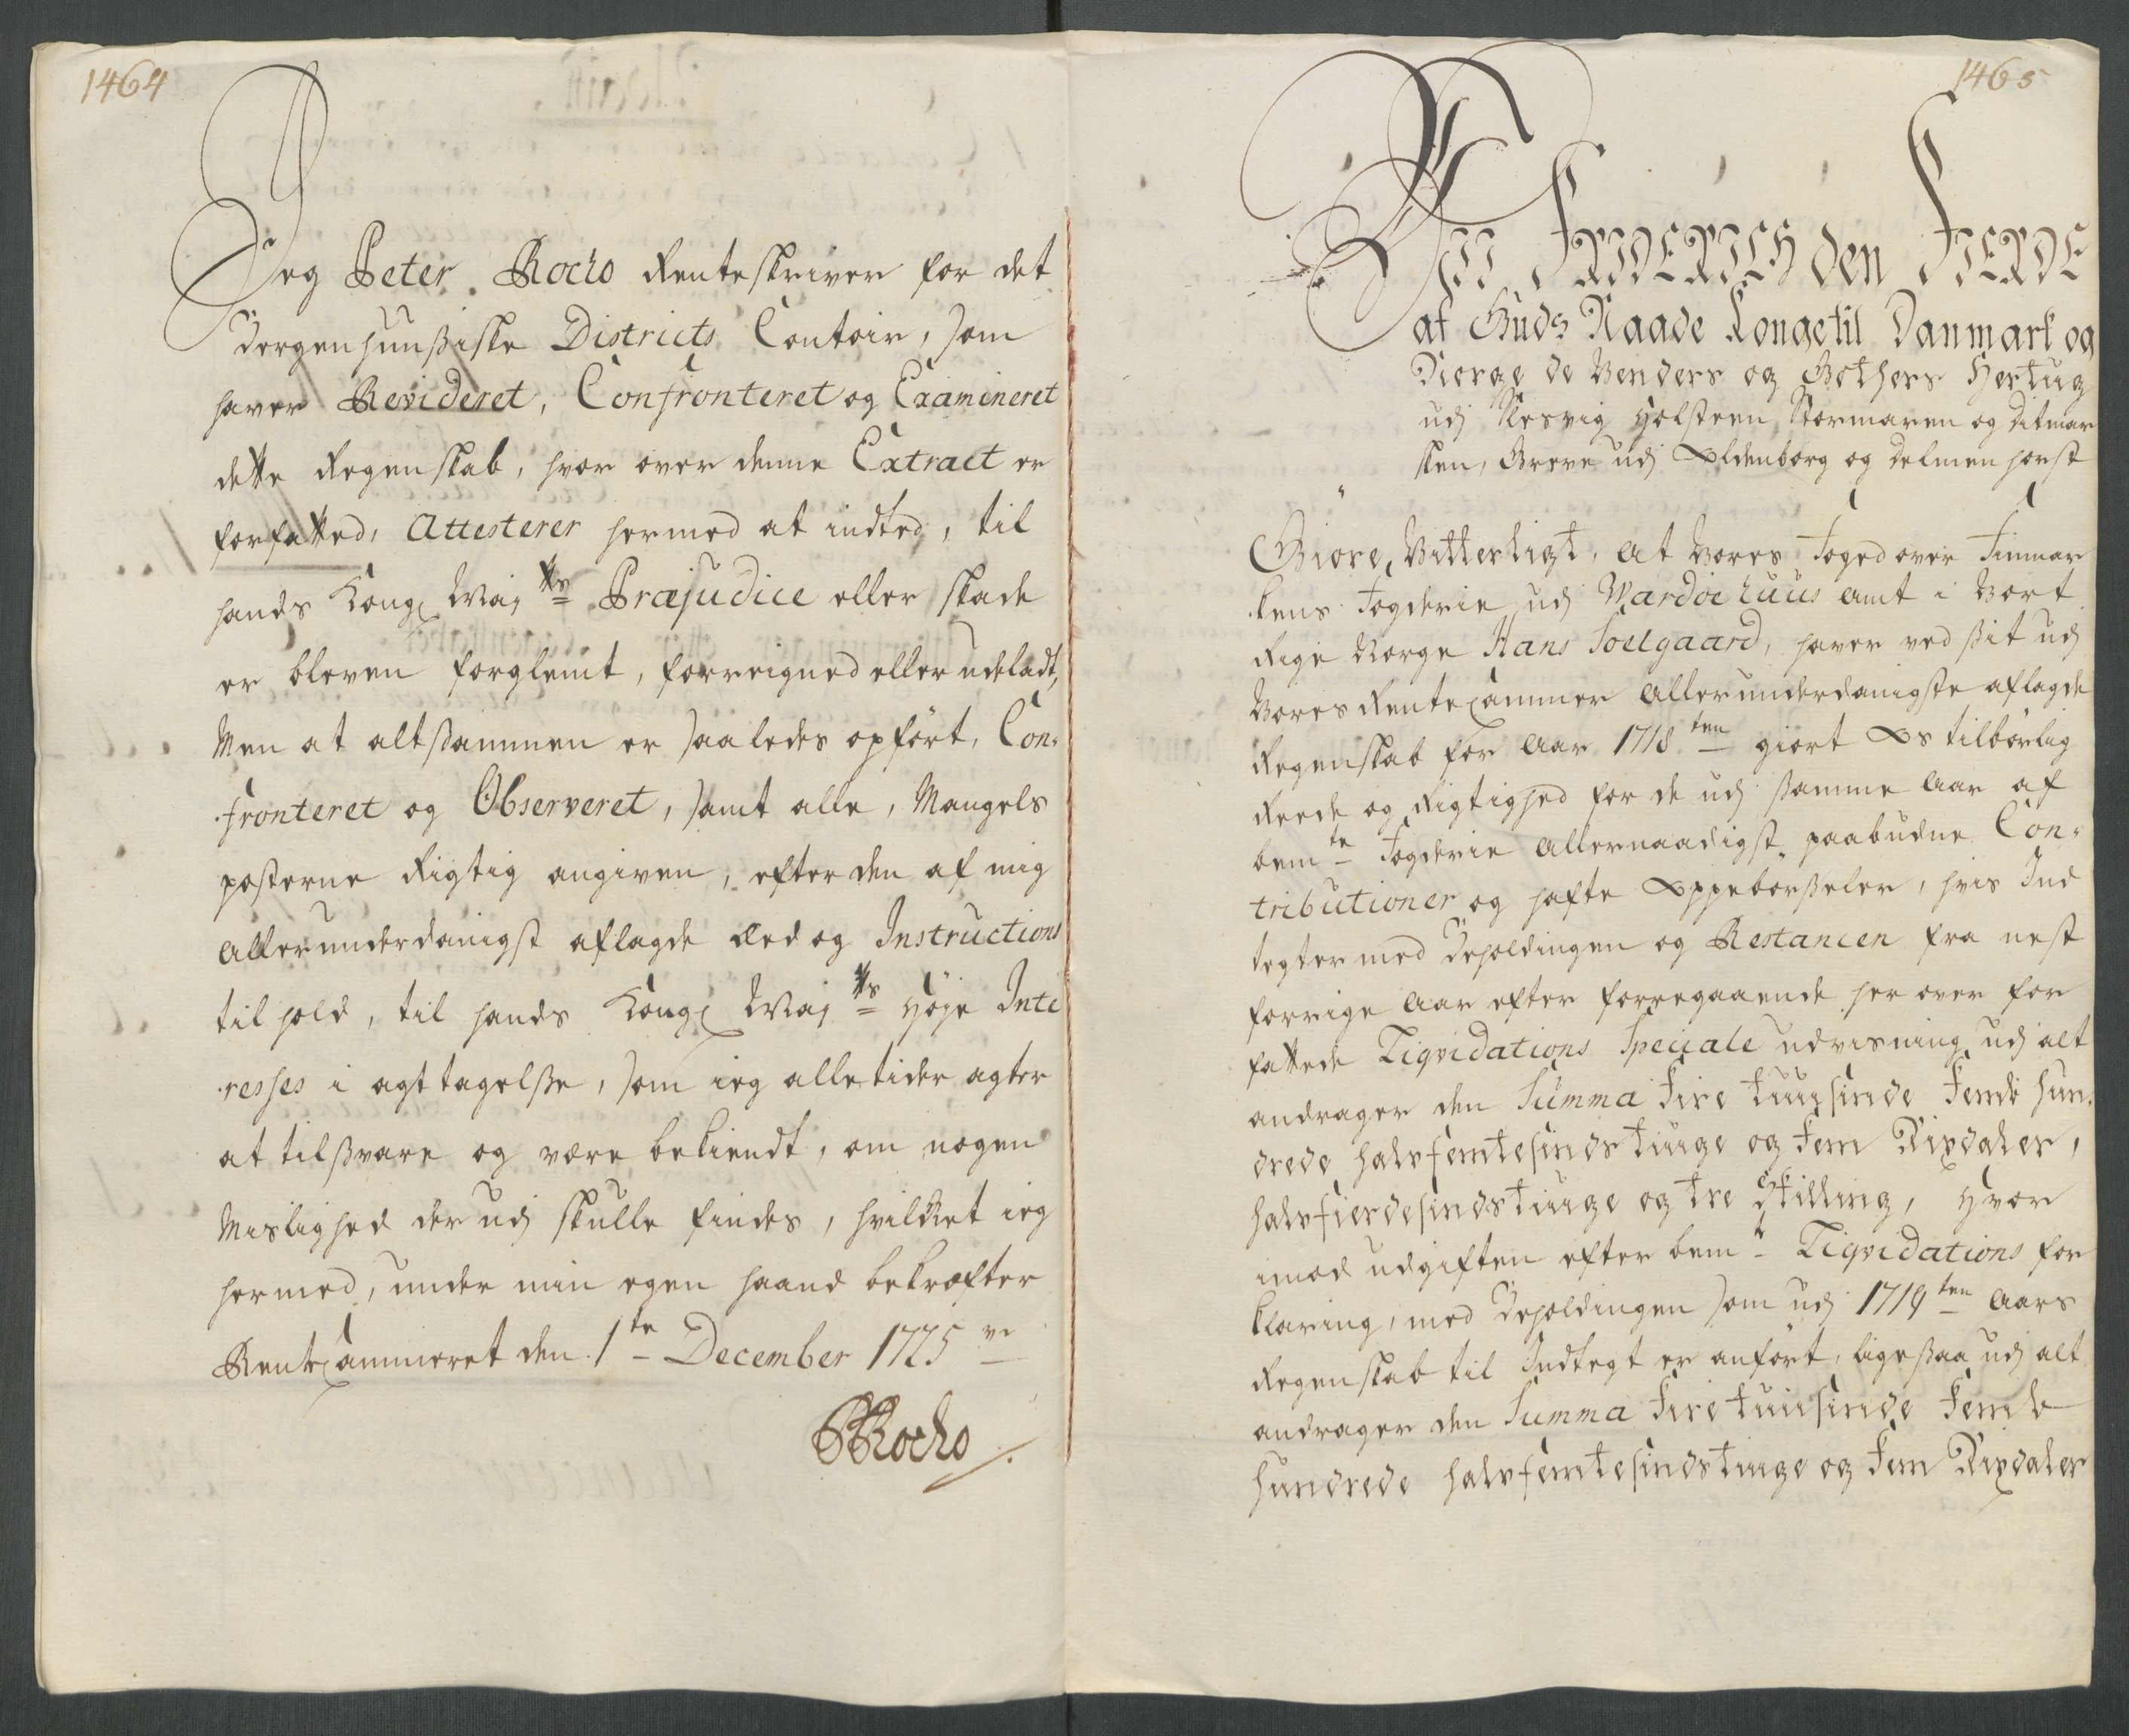 1464
Jeg Peter Rocho Renteskriver for det
Bergenhuusiske Districts Contoir, som
haver Revideret, Confronteret og Examineret
dette Regenskab, hvor over denne Extract er
forfatted, Attesterer hermed at intted, til
hands Kongl Maytts Præjudice eller skade
er bleven forglemt, forreigned eller udeladt,
Men at altsammen er saaledes opført, Con-
fronteret og Observeret, samt alle, Mangels
posterne Rigtig angiven, efter den af mig
allerunderdanigst aflagde Æed og Instructions
tilhold, til hands Kongl Maytts Høye Inte
resses i agttagelse, som ieg alletider agter
at tilsvare og være bekiendt, om nogen
Mislighed der udj skulle findes, hvilket ieg
hermed, under min egen haand bekræfter
RenteCammeret den 1te December 1725
PRocho
1465
Wii Friderich den Fierde
af Guds Naade Konge til Danmark og
Norge de Venders og Gothers Hertug
udj Slesvig Holsteen, Stormaren og Ditmar
sken, Greve udj Oldenborg og Delmenhorst
Giøre Vitterligt, at Vores Foged over Finmar
kens Fogderie udj Wardøehuus Amt i Vort
Rige Norge Hans Soelgaard, haver ved sit udj
Vores RenteCammer allerunderdanigste aflagde
Regenskab for Aar 1718ten giort Os tilbørlig
Reede og Rigtighed for de udj samme Aar af
bemte Fogderie allernaadigst paabudne Con-
tributioner og hafte Oppeborseler, hvis Ind
tegter med Beholdingen og Restancen fra nest
forrige Aar efter forregaaende her over for
fattede Liqvidations Speciale udvisning udj alt
andrager den Summa Fire tuusinde Femb hun-
drede halvfemtesindstiuge og Fem Rixdaler,
halvfierdesindstiuge og tre Skilling, Hvor
imod udgiften efter bemt Liqvidations for
klaring, med Beholdingen som udj 1719ten Aars
Regenskab til Indtegt er anført, ligesaa udj alt
andrager den Summa Fire tuusinde Femb
hundrede halvfemtesindstiuge og Fem Rixdaler